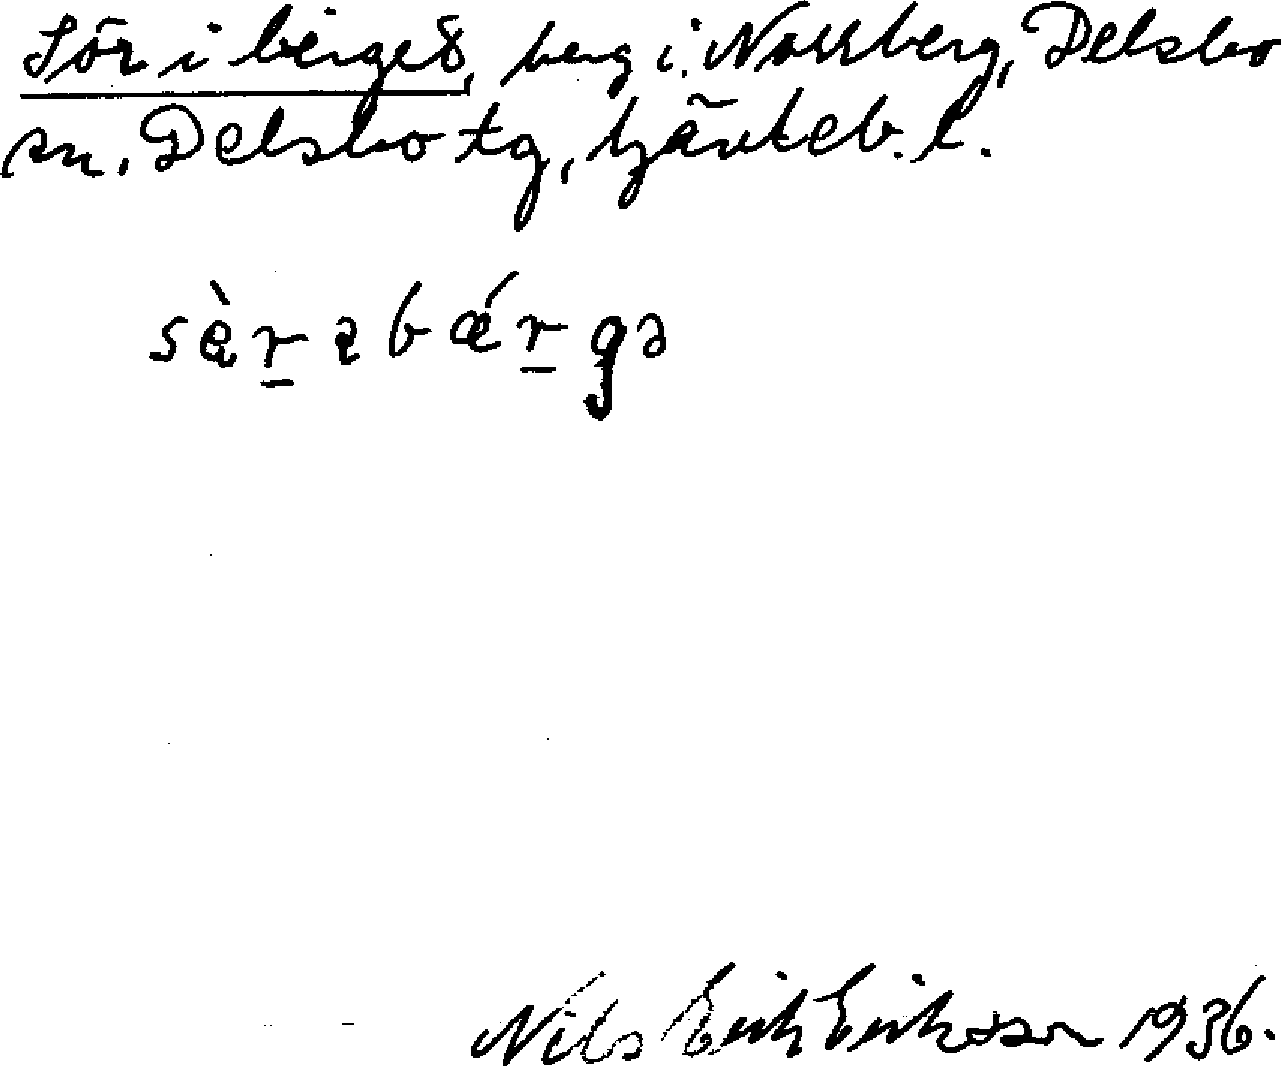 Sör i berget, berg i Norrberg, Delsbo
sn. Delsbo tg, Gävleb. l.
Nils Erik Eriksson 1936.